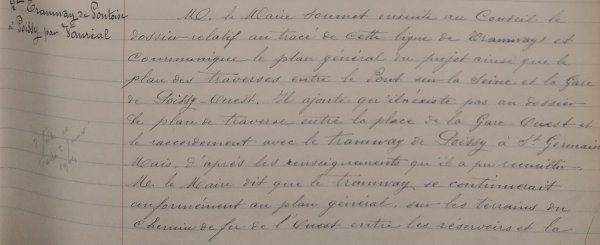 Tramway de Pontoise
à Poissy par Vauréal
M. le Maire soumet ensuite au Conseil le
dossier relatif au tracé de cette ligne de Tramways et
communique le plan général du projet ainsi que le
plan des traverses entre le Pont sur la Seine et la Gare
de Poissy-Ouest. Il ajoute qu'il n'existe pas au dossier
le plan de traverse entre la place de la Gare Ouest et
le raccordement avec le tramway de Poissy à St Germain
Mais, d'après les renseignements qu'il a pu recueillir
M. le Maire dit que le tramway se continuerait
conformément au plan général, sur les terrains du
Chemin de fer de l'Ouest entre les réservoirs et la